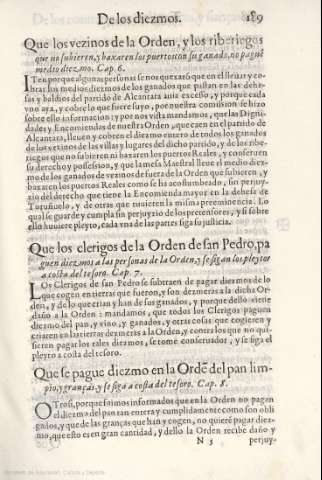 De los diezmos. 189
Que los vezinos de la Orden, y los riberiegos
que no subieren, y baxaren los puertos con su ganado, no paguē
medio diezmo. Cap. 6.
ITem porque algunas personas se nos quexarō que en el llevar y co-
brar los medios diezmos de los ganados que pastan en las dehe-
sas y valdios del partido de Alcantara auia excesso, y porque cada
vno aya, y cobre lo que fuere suyo, por nuestra comission se hizo
sobre ello informacion: y por nos vista mandamos, que las Digni-
dades y Encomiendas de nuestra Orden, que caen en el partido de
Alcantara, lleuen y cobren el diezmo entero de todos los ganados
de los vezinos de las villas y lugares del dicho partido, y de los ribe-
riegos que no subieren ni baxaren los puertos Reales, y conseruen
su derecho y possession, y que la mesa Maestral lleue el medio diez-
mo de los ganados de vezinos de fuera de la Orden que subieren, y
baxaren los puertos Reales como se ha acostumbrado, sin perjuy-
zio del derecho que tiene la Encomienda mayor en la dehesa de
Toruñuelo, y de otras que tuuieren la misma preeminencia. Lo
qual se guarde y cumpla sin perjuyzio de los pretensores, y si sobre
ello huuiere pleyto, cada vna de las partes siga su justicia.
Que los clerigos de la Orden de san Pedro, pa
guen diezmos a las personas de la Orden, y se sigan los pleytos
a costa del tesoro. Cap. 7.
LOs Clerigos de san Pedro se substraen de pagar diezmos de lo
que cogen en tierras que fueron, y son dezmeras a la dicha Or-
den, y de lo que crian y han de sus ganados, y porque dello viene
daño a la Orden: mandamos, que todos los Clerigos paguen
diezmo del pan, y vino, y ganados, y otras cosas que cogieren y
criaren en las tierras dezmeras a la Orden, y contra los que no qui-
sieren pagar los tales diezmos, se tome conseruador, y se siga el
pleyto a costa del tesoro.
Que se pague diezmo en la Ordē del pan lim-
pio, y granças, y se siga a costa del tesoro. Cap. 8.
OTrosi, porque somos informados que en la Orden no pagan
el diezmo del pan tan entera y cumplidamente como son obli-
gados, y que de las granças que han y cogen, no quierē pagar diez-
mo, que esto es en gran cantidad, y dello la Orden recibe daño y
N 5 perjuy-